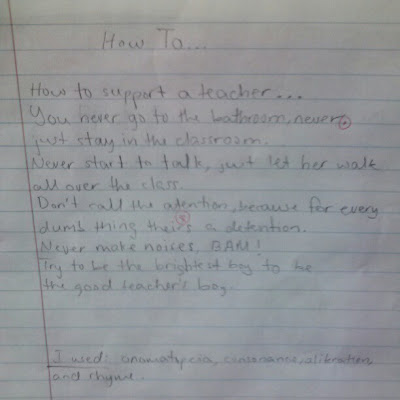 How To...
How to support a teacher...
You never go to the bathroom, never
just stay in the classroom.
Never start to talk, just let her walk
all over the class.
Don't call the atention, because for every
dumb thing their's a detention.
Never make noices, BAM!
Try to be the brightest boy to be
the good teacher's boy.
I used: onomatypeia, consonance, alibration
and rhyme.